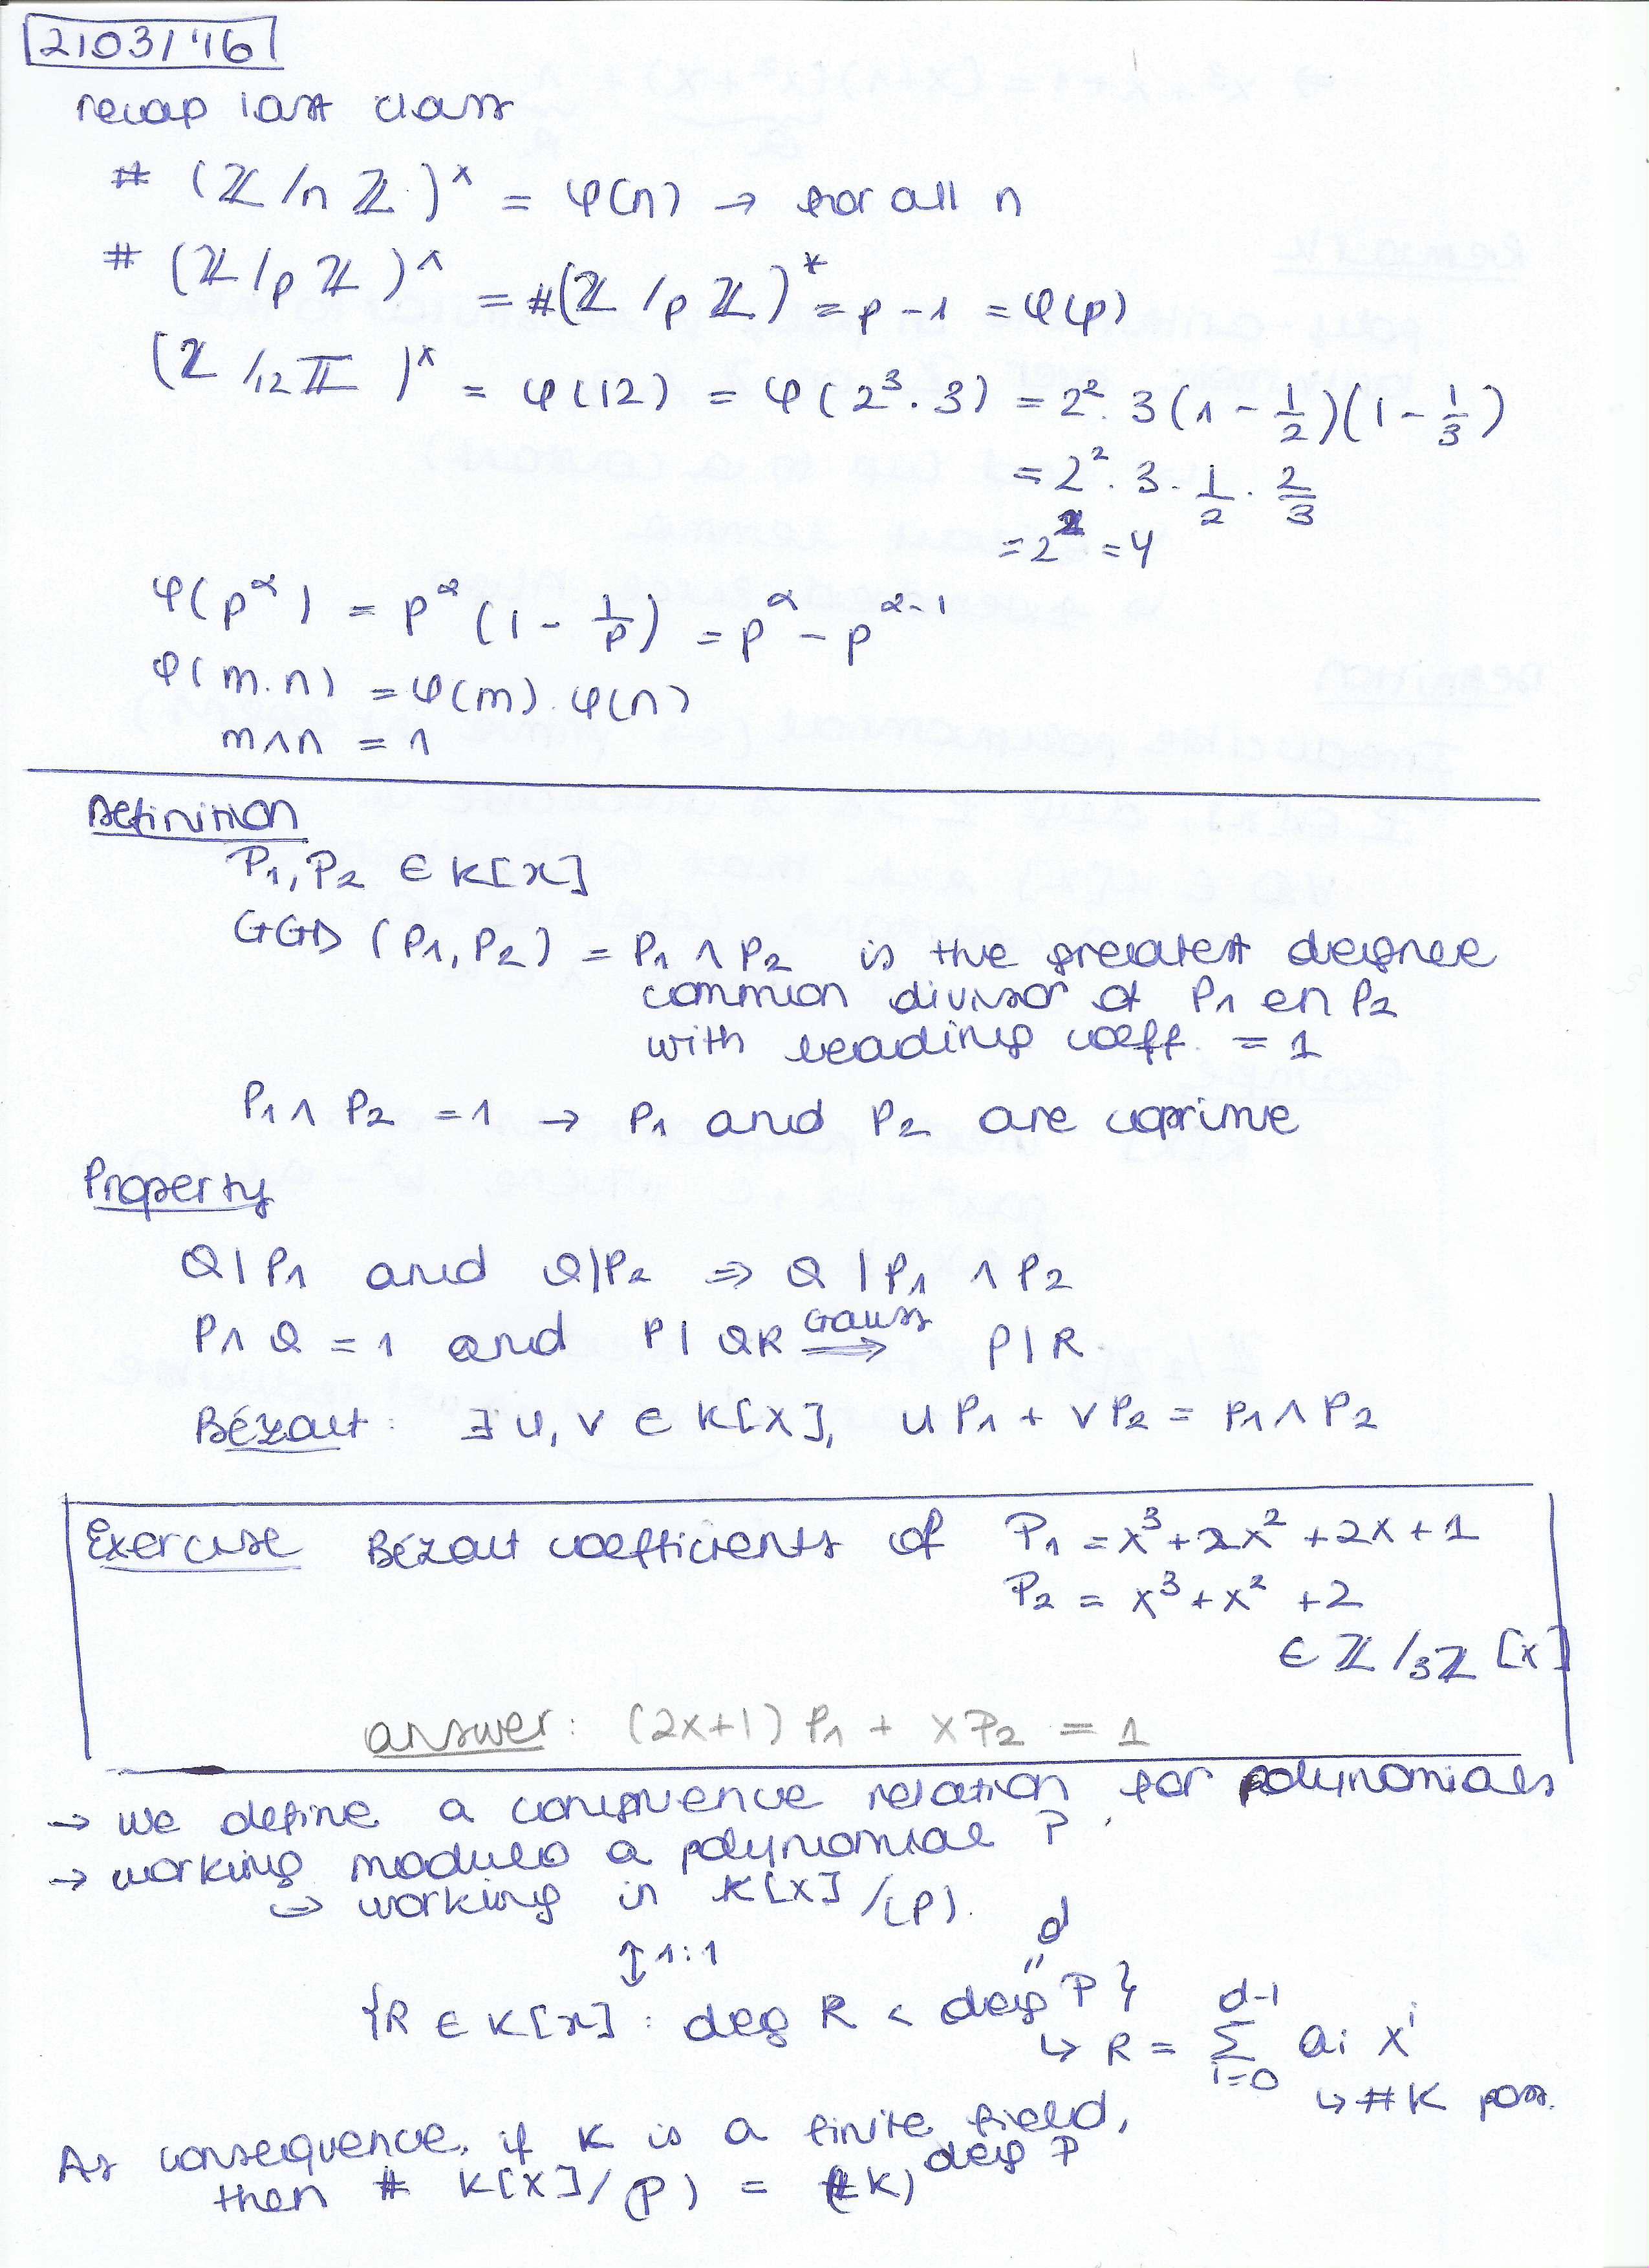 2103/'16
recap last class
# (ℤ/nℤ)^x = φ(n) → for all n
# (ℤ/pℤ)^x = #(ℤ/pℤ)^* = p-1 = φ(p)
(ℤ/12ℤ)^x = φ(12) = φ(2³·3) = 2²·3(1-1/2)(1-1/3)
= 2²·3·1/2·2/3
= 2² = 4
φ(p^α) = p^α(1-1/p) = p^α - p^(α-1)
φ(m.n) = φ(m).φ(n)
m∧n = 1
Definition
P1, P2 ∈ K[x]
GGD (P1, P2) = P1 ∧ P2 is the greatest degree
common divisor of P1 en P2
with leading coeff. = 1
P1 ∧ P2 = 1 → P1 and P2 are coprime
Property
Q|P1 and Q|P2 ⇒ Q|P1 ∧ P2
P∧Q = 1 and P|QR ⇒(Gauss) P|R
Bézout: ∃ u, v ∈ K[X], uP1 + vP2 = P1∧P2
Exercise Bézout coefficients of P1 = x³+2x²+2x+1
P2 = x³+x²+2
∈ ℤ/3ℤ [x]
answer: (2x+1)P1 + xP2 = 1
→ we define a congruence relation for polynomials
→ working modulo a polynomial P
→ working in K[X]/(P).
↕ 1:1
d
"
{R ∈ K[x] : deg R < deg P}
↳ R = Σ_{i=0}^{d-1} ai X^i
↳ #K poss.
As consequence, if K is a finite field,
then # K[X]/(P) = (#K)^deg P